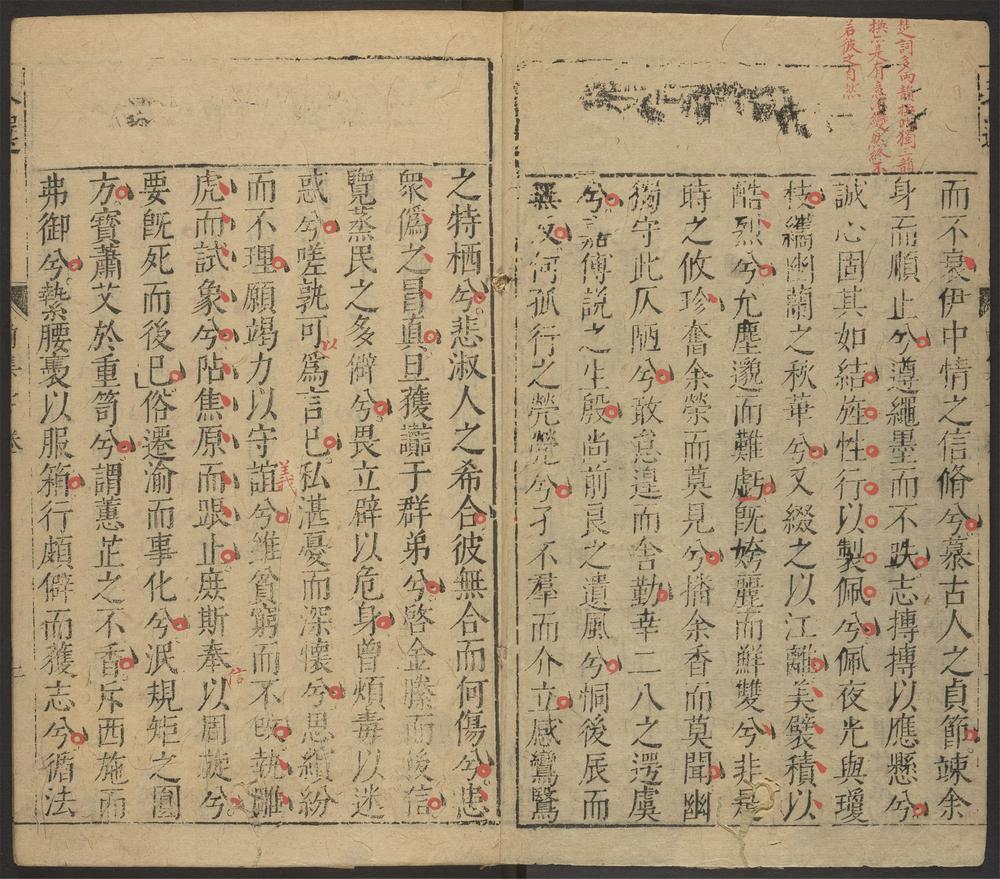 楚詞多兩韻換此獨三韻
換亦是有意變然終不
若彼之自然
而不衰伊中情之信脩兮慕古人之貞節竦余
身而順止兮遵繩墨而不跌志摶摶以應懸兮
誠心固其如結旌性行以製佩兮佩夜光與瓊
枝纗幽蘭之秋華兮又綴之以江離美襞積以
酷烈兮允塵邈而難虧既姱麗而鮮雙兮非是
時之攸珍奮余榮而莫見兮播余香而莫聞幽
獨守此仄陋兮敢怠遑而舍勤幸二八之遻虞
兮嘉傅說之生殷尚前良之遺風兮恫後辰而
無及何孤行之煢煢兮孑不羣而介立感鸞鷖
之特栖兮悲淑人之希合彼無合而何傷兮患
衆僞之冒真旦獲讟于群弟兮啓金縢而後信
覽蒸民之多僻兮畏立辟以危身曾煩毒以迷
惑兮嗟孰可以為言已私湛憂而深懷兮思繽紛
而不理願竭力以守誼義兮雖貧窮而不改執雕
虎而試象兮阽焦原而跟止庶斯奉信以周旋兮
要既死而後已俗遷渝而事化兮泯規矩之圓
方寶蕭艾於重笥兮謂蕙芷之不香斥西施而
弗御兮縶腰褭以服箱行頗僻而獲志兮循法